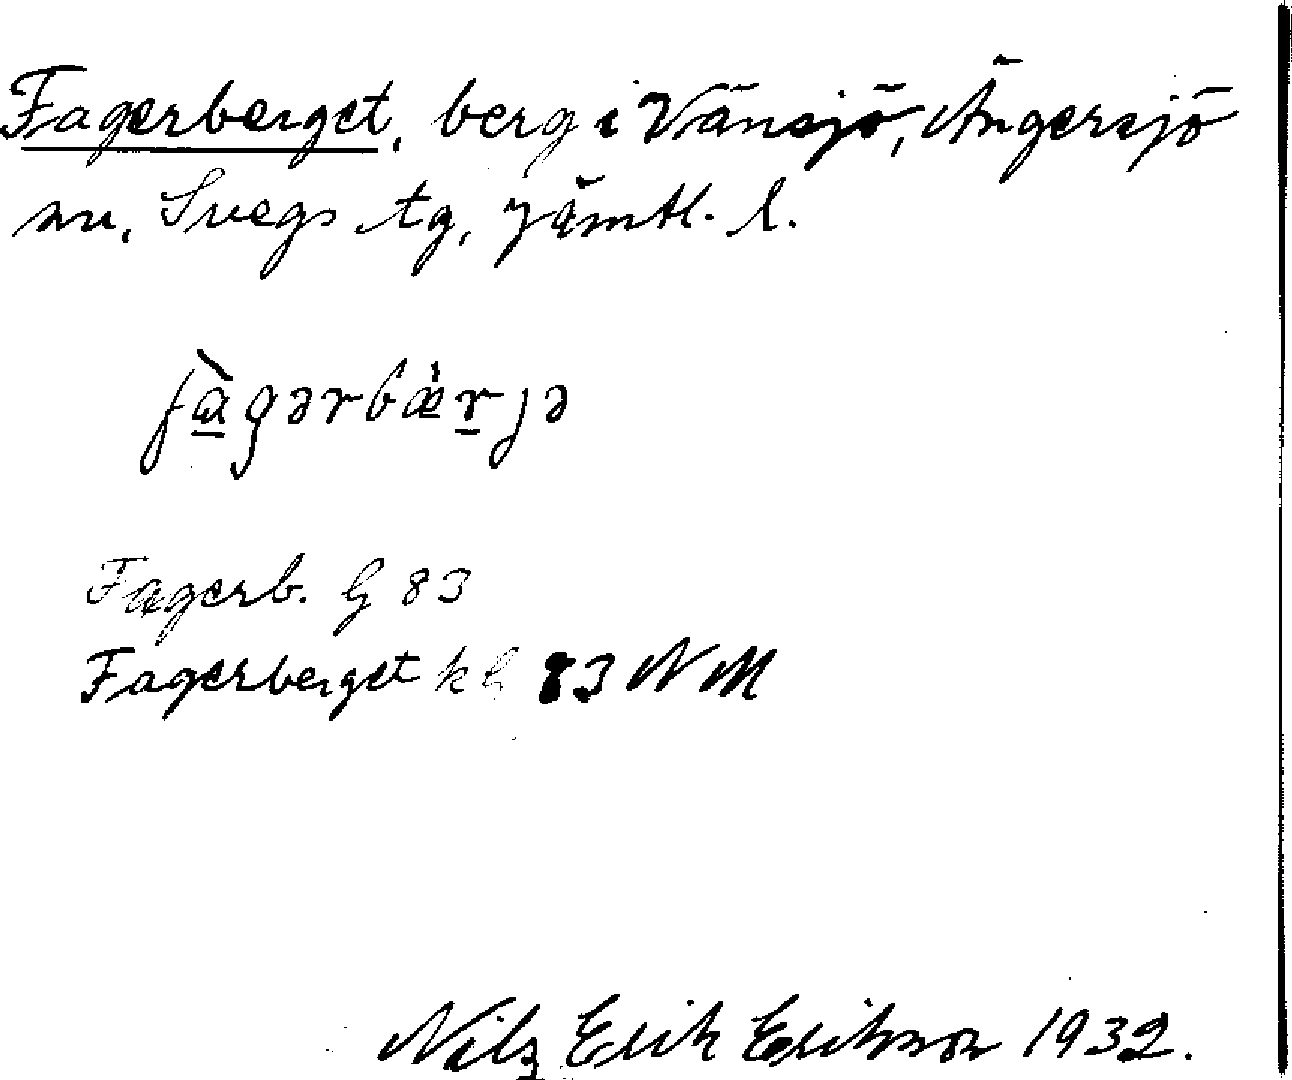 Fagerberget, berg i Vänsjö, Ängersjö
sn, Svegs tg, Jämtl. l.
fàgərbæ̀rjə
Fagerb. G 83
Fagerberget k G 83 NM
Nils Erik Erikson 1932.